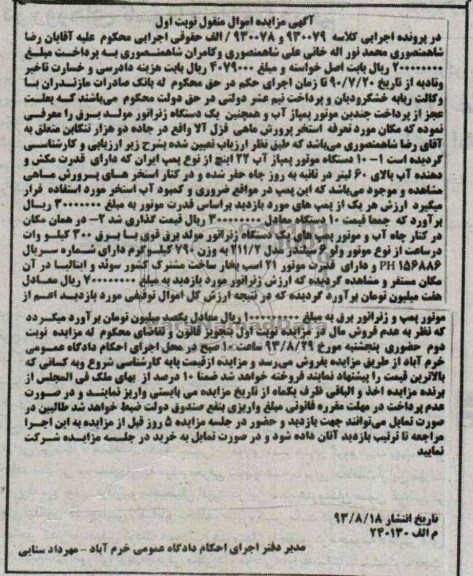 آگهی مزایده اموال منقول نوبت اول
در پرونده اجرایی کلاسه ۹۳۰۰۷۹ و ۹۳۰۰۷۸ / الف حقوقی اجرایی محکوم علیه آقایان رضا
شاهمنصوری محمد نور اله خانی علی شاهمنصوری وکامران شاهمنصوری به پرداخت مبلغ
ریال بابت اصل خواسته و مبلغ ۴۰۷۹۰۰۰ ریال بابت هزینه دادرسی و خسارت تاخیر
وتادیه از تاریخ ۹۰/۷/۲۰ تا زمان اجرای حکم در حق محکوم له بانک صادرات مازندران با
وکالت ربابه خشگرودیان و پرداخت نیم عشر دولتی در حق دولت محکوم می‌باشند که بعلت
عجز از پرداخت چندین موتور پمپاژ آب و همچنین یک دستگاه ژنراتور مولد برق را معرفی
نموده که مکان مورد تعرفه استخر پرورش ماهی قزل آلا واقع در جاده دو هزار تنکابن متعلق به
آقای رضا شاهمنصوری می‌باشد که طبق نظر ارزیاب تعیین شده بشرح زیر ارزیابی و کارشناسی
گردیده است ۱- ۱۰ دستگاه موتور پمپاژ آب ۲۲ اینچ از نوع پمپ ایران که دارای قدرت مکش و
دهنده آب بالای ۶۰ لیتر در ثانیه به روز چاه حفر شده و در کنار استخر های پرورش ماهی
مشاهده و موجود می‌باشد که این پمپ در مواقع ضروری و کمبود آب استخر مورد استفاده قرار
میگیرد ارزش هر یک از پمپ های مورد بازدید براساس قدرت موتور به مبلغ ۳۰۰۰۰۰۰۰ ریال
برآورد که جمعا قیمت ۱۰ دستگاه معادل ۳۰۰۰۰۰۰۰۰ ریال قیمت گذاری شد ۲- در همان مکان
در کنار چاه آب و موتور پمپ های یک دستگاه ژنراتور مولد برق قوی با برق ۳۰۰ کیلو وات
درساعت از نوع موتور ولو ۶ سیلندر مدل ۲۱۱/۲ به وزن ۷۹۰ کیلوگرم دارای شماره سریال
PH ۱۵۶۸۸۶ و دارای قدرت موتور ۲۱ اسب بخار ساخت مشترک کشور سوئد و ایتالیا در آن
مکان مستقر و مشاهده گردیده که ارزش ژنراتور مورد بازدید به مبلغ ریال معادل
هفت میلیون تومان برآورد گردیده که در نتیجه ارزش کل اموال توقیفی مورد بازدید اعم از
موتور پمپ و ژنراتور برق به مبلغ ریال معادل یکصد میلیون تومان برآورد میگردد
که نظر به عدم فروش مال در مزایده نوبت اول بتجویز قانون و تقاضای محکوم له مزایده نوبت
دوم حضوری پنجشنبه مورخ ۹۳/۸/۲۹ ساعت ۱۰ صبح در محل اجرای احکام دادگاه عمومی
خرم آباد از طریق مزایده بفروش می‌رسد و مزایده ازقیمت پایه کارشناسی شروع وبه کسانی که
بالاترین قیمت را پیشنهاد نمایند فروخته خواهد شد ضمنا ۱۰ درصد از بهای ملک فی المجلس از
برنده مزایده اخذ و الباقی ظرف یکماه از تاریخ مزایده می بایستی واریز نمایند و در صورت
عدم پرداخت در مهلت مقرره قانونی مبلغ واریزی بنفع صندوق دولت ضبط خواهد شد طالبین در
صورت تمایل می‌توانند جهت بازدید و حضور در جلسه مزایده ۵ روز قبل از مزایده به این اجرا
مراجعه تا ترتیب بازدید آنان داده شود و در صورت تمایل به خرید در جلسه مزایده شرکت
نمایند
تاریخ انتشار ۹۳/۸/۱۸
م الف ۲۴۰۱۳۰
مدیر دفتر اجرای احکام دادگاه عمومی خرم آباد - مهرداد سنایی